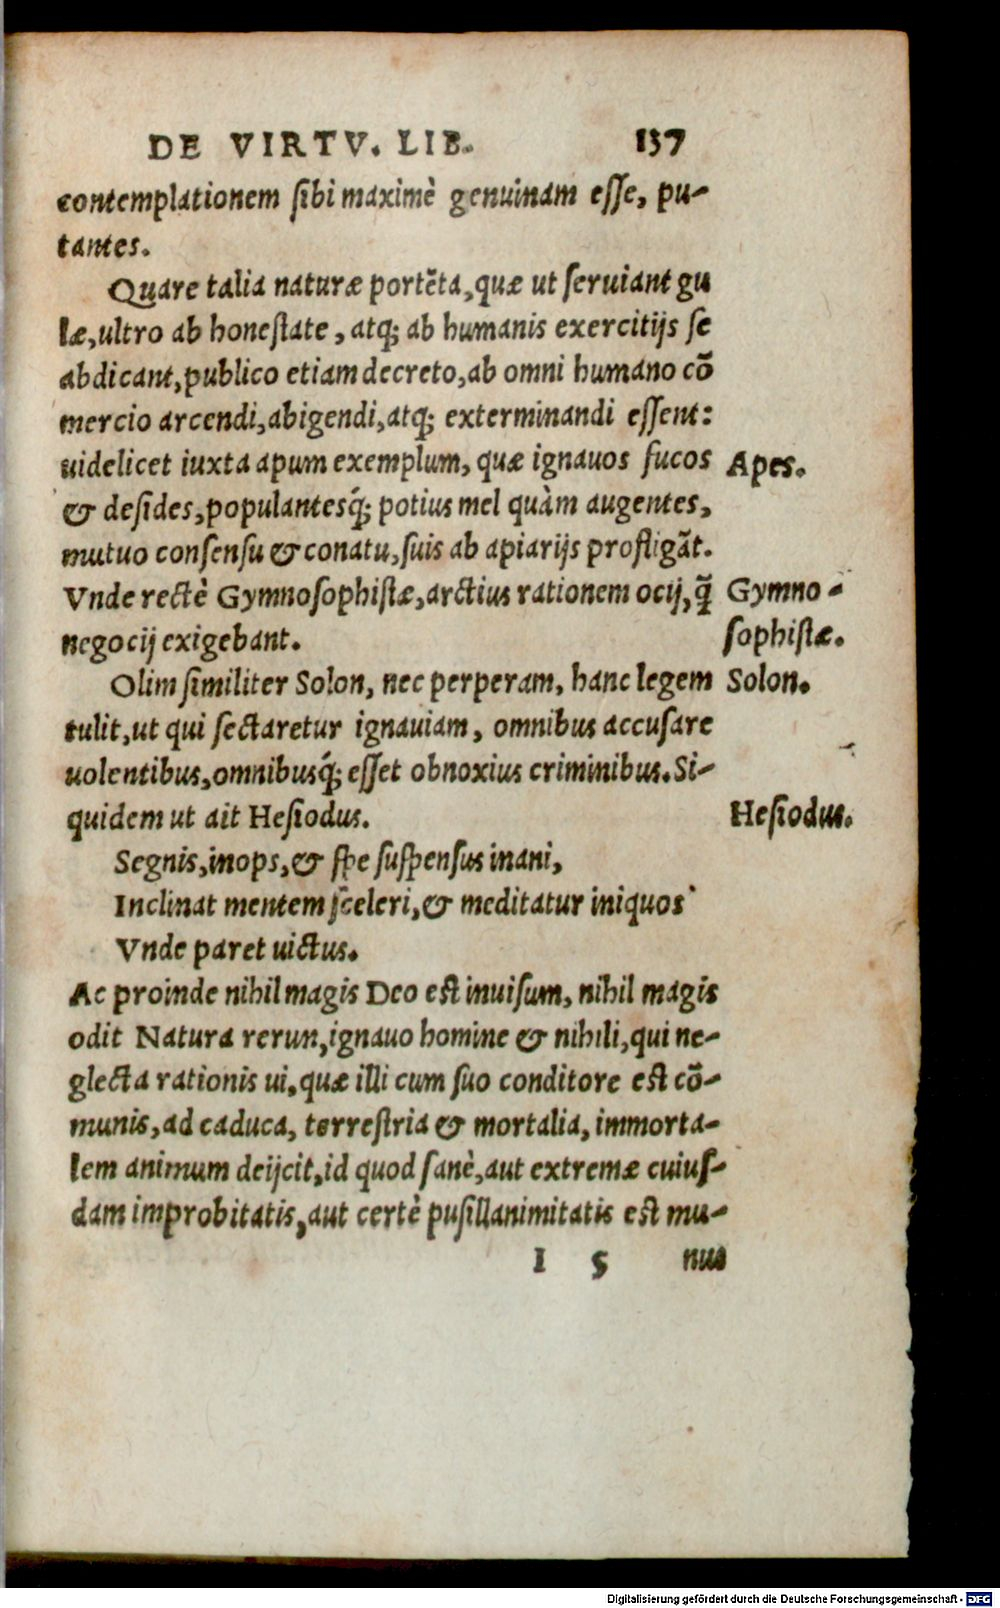 DE VIRTV. LIB. 137
contemplationem sibi maximè genuinam esse, pu-
tantes.
Quare talia naturæ portẽta, quæ ut seruiant gu
læ, ultro ab honestate, atq; ab humanis exercitijs se
abdicant, publico etiam decreto, ab omni humano cõ
mercio arcendi, abigendi, atq; exterminandi essent:
uidelicet iuxta apum exemplum, quæ ignauos fucos Apes.
& desides, populantesq́; potius mel quàm augentes,
mutuo consensu & conatu, suis ab apiarijs profligãt.
Vnde rectè Gymnosophistæ, arctius rationem ocij, q̃ Gymno-
negocij exigebant. sophistæ.
Olim similiter Solon, nec perperam, hanc legem Solon.
tulit, ut qui sectaretur ignauiam, omnibus accusare
uolentibus, omnibusq́; esset obnoxius criminibus. Si-
quidem ut ait Hesiodus. Hesiodus.
Segnis, inops, & spe suspensus inani,
Inclinat mentem sceleri, & meditatur iniquos
Vnde paret uictus.
Ac proinde nihil magis Deo est inuisum, nihil magis
odit Natura rerun, ignauo homine & nihili, qui ne-
glecta rationis ui, quæ illi cum suo conditore est cõ-
munis, ad caduca, terrestria & mortalia, immorta-
lem animum deijcit, id quod sanè, aut extremæ cuius-
dam improbitatis, aut certè pusillanimitatis est mu-
I 5 nus
Digitalisierung gefördert durch die Deutsche Forschungsgemeinschaft - DFG